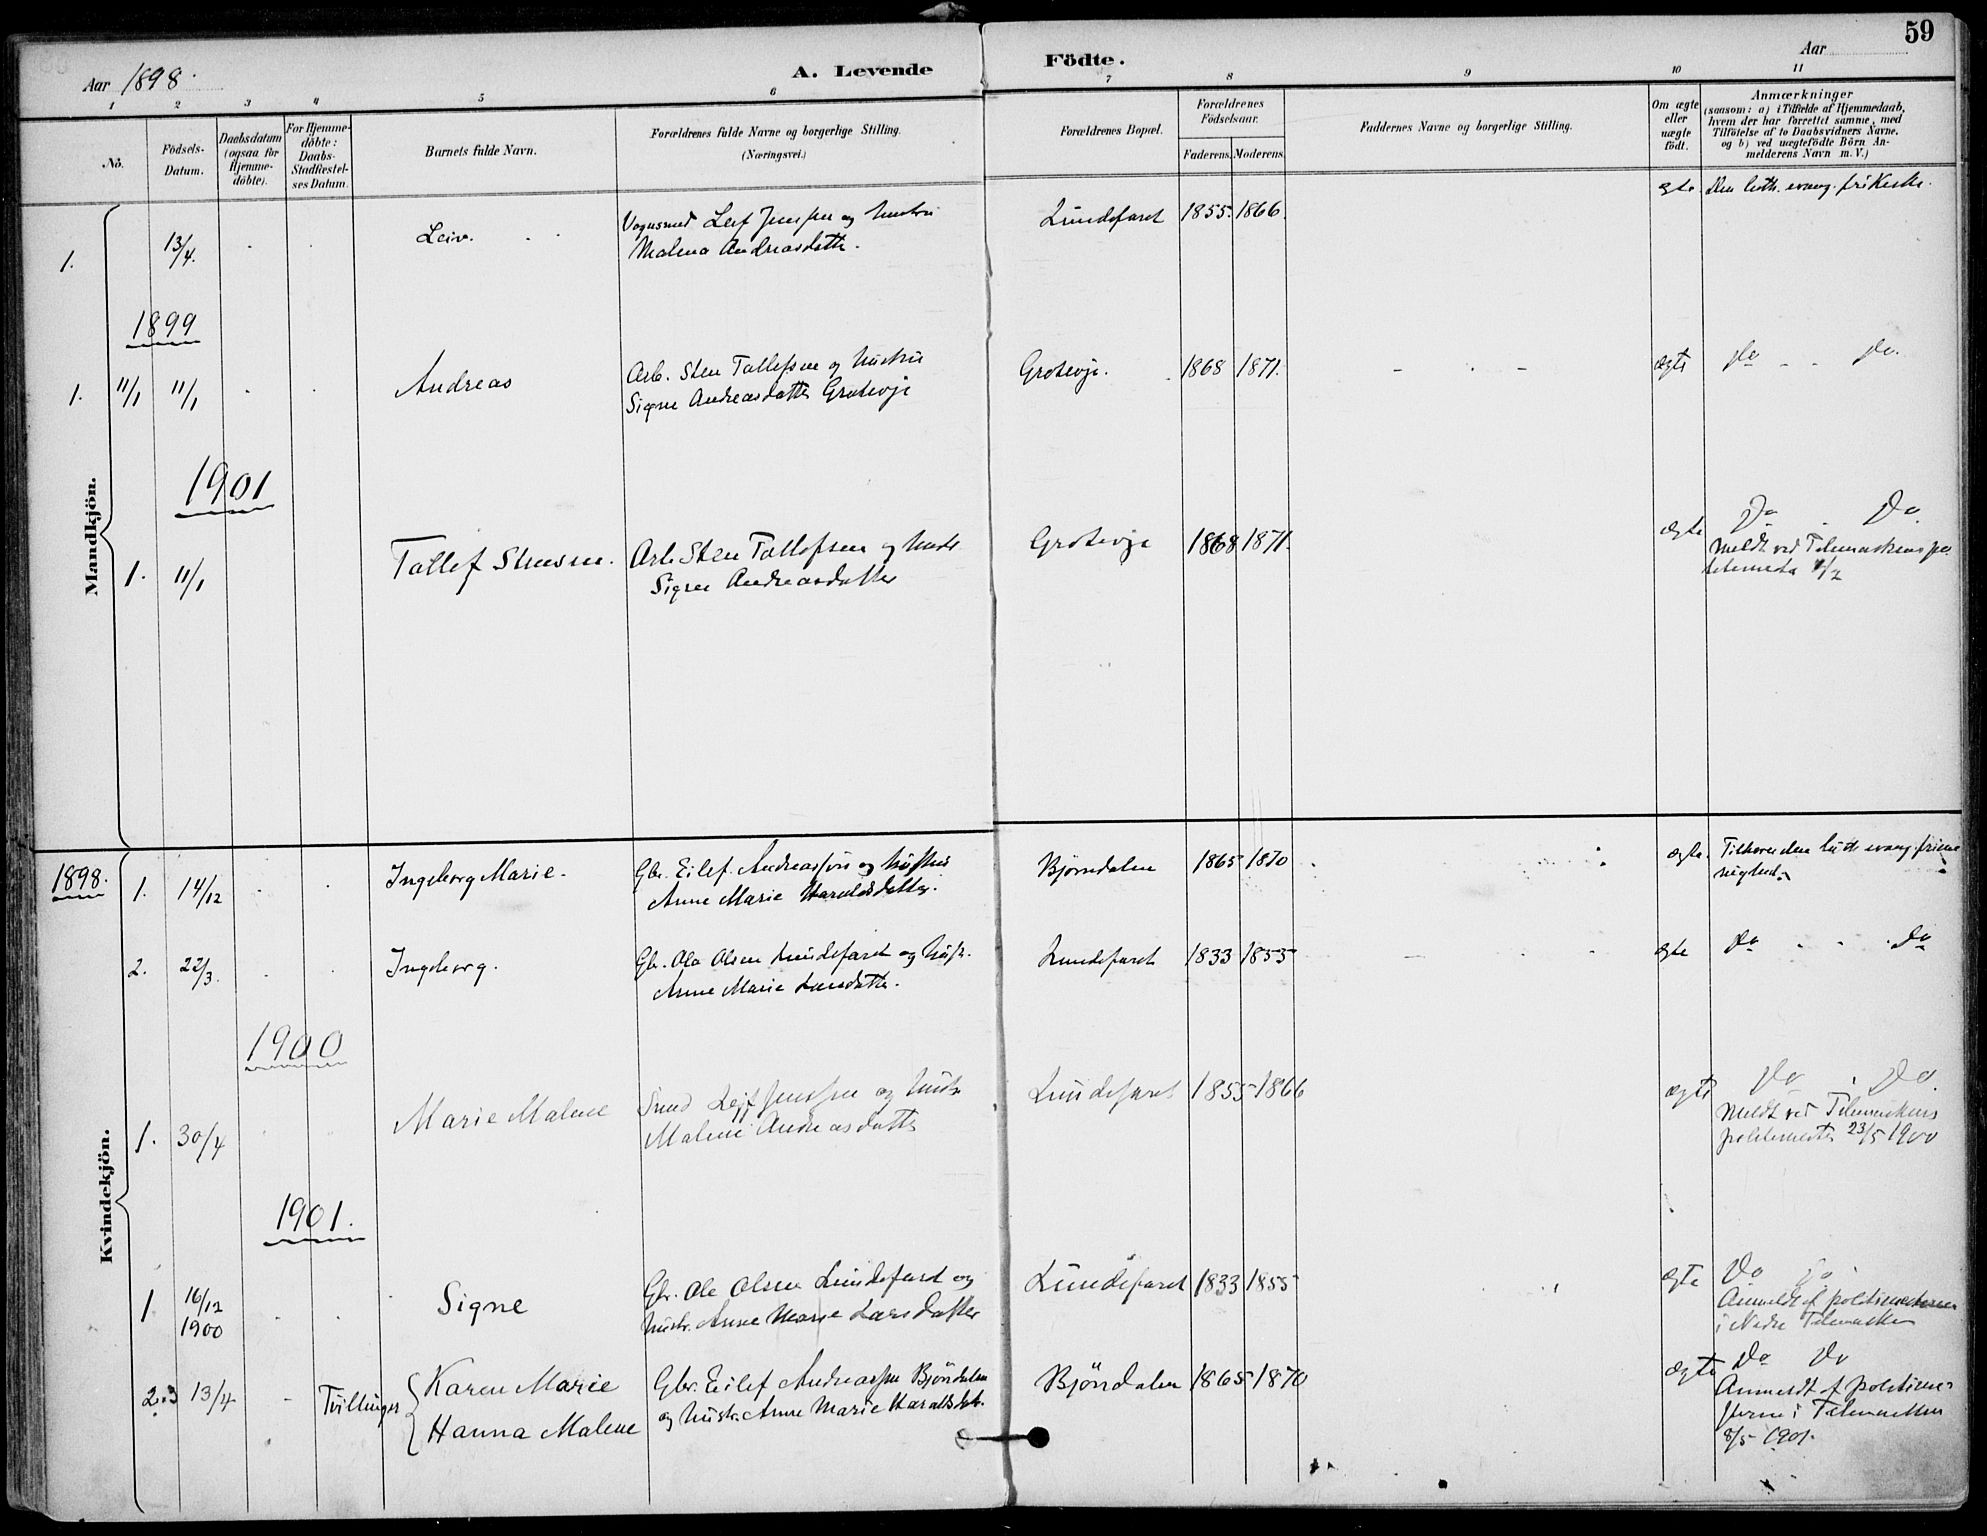 59
Aar 1898.
A. Levende Födte.
Aar
1 2 3 4 5 6 7 8 9 10 11
No.
Födsels-Datum.
Daabsdatum (ogsaa for Hjemme-döbte).
For Hjemme-döbte: Daabs-Stadfæstel-ses Datum.
Barnets fulde Navn.
Forældrenes fulde Navne og borgerlige Stilling.
(Næringsvei.)
Forældrenes Bopæl.
Forældrenes Födselsaar.
Faderens. Moderens.
Faddernes Navne og borgerlige Stilling.
Om ægte eller uægte födt.
Anmærkninger
(saasom: a) i Tilfælde af Hjemmedaab,
hvem der har forrettet samme, med
Tilföielse af to Daabsvidners Navne,
og b) ved uægtefödte Börn An-
melderens Navn m. V.)
Mandkjön.
1. 13/4. Leiv. Leif Jenssen og hustru Lundefaret 1855. 1866. ægte. Den luth. evang. frikirke.
Malena Andreasdatter.
1899
1. 11/1 11/1 Andreas Arb. Sten Tallefsen og hustru Grotevje. 1868 1871. ægte Do Do.
Signe Andreasdatter Grotevje
1901
1. 11/1 Tallef Stensen. Arb. Sten Tallefsen og hustr Grotevje 1868 1871. ægte Do Do
Signe Andreasdatter
Meldt ved Telemarkens
Kvindekjön.
1898. 1. 14/12 Ingeborg Marie. Gbr. Eilef Andreassøn og hustru Bjørndalen 1865 1870 ægte.
Anne Marie Haraldsdatter.
2. 22/3. Ingeborg. Gbr. Ole Olsen Lundefaret og hustr. Lundefaret 1833 1855 ægte Do Do
Anne Marie Larsdatter.
1900
1. 30/4 Marie Malene Smed Leif Jenssen og hustr Lundefaret 1855 1866 ægte Do Do.
Malene Andreasdatter
Meldt ved Telemarkens
politimester 23/5 1900
1901.
1 16/12 1900 Signe Gbr. Ole Olsen Lundefaret og Lundefaret 1833 1855 ægte Do Do
hustr. Anne Marie Larsdatter
Anmeldt af
i Nedre Telemarken
2.3 13/4 Tvillinger Karen Marie Gbr. Eilef Andreassen Bjöndalen Bjöndalen 1865 1870 ægte Do Do
Hanna Malene og hustr. Anne Marie Haraldsdatr.
Anmeldt af
i Telemarken
8/5 1901.